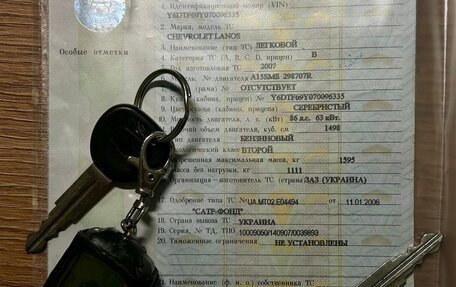 1. Идентификационный номер (VIN)
Y6DTF69Y070096335
2. Марка, модель ТС
CHEVROLET LANOS
3. Наименование (тип ТС) ЛЕГКОВОЙ
Особые отметки
4. Категория ТС (A, B, C, D, прицеп) B
Год изготовления ТС 2007
двигателя A15SMS 298707R
ОТСУТСТВУЕТ
8. Кузов (кабина, прицеп) № Y6DTF69Y070096335
9. Цвет кузова (кабины, прицепа) СЕРЕБРИСТЫЙ
двигателя, л. с. (кВт) 86 л.с. 63 кВт.
объем двигателя, куб. см 1498
двигателя БЕНЗИНОВЫЙ
класс ВТОРОЙ
максимальная масса, кг 1595
без нагрузки, кг 1111
изготовитель ТС (страна) ЗАЗ (УКРАИНА)
17. Одобрение типа ТС № UA.MT02.E04494 от 11.01.2006
"САТР-ФОНД"
18. Страна вывоза ТС УКРАИНА
19. Серия, № ТД, ТПО 10009050/140907/0039893
20. Таможенные ограничения НЕ УСТАНОВЛЕНЫ
собственника ТС